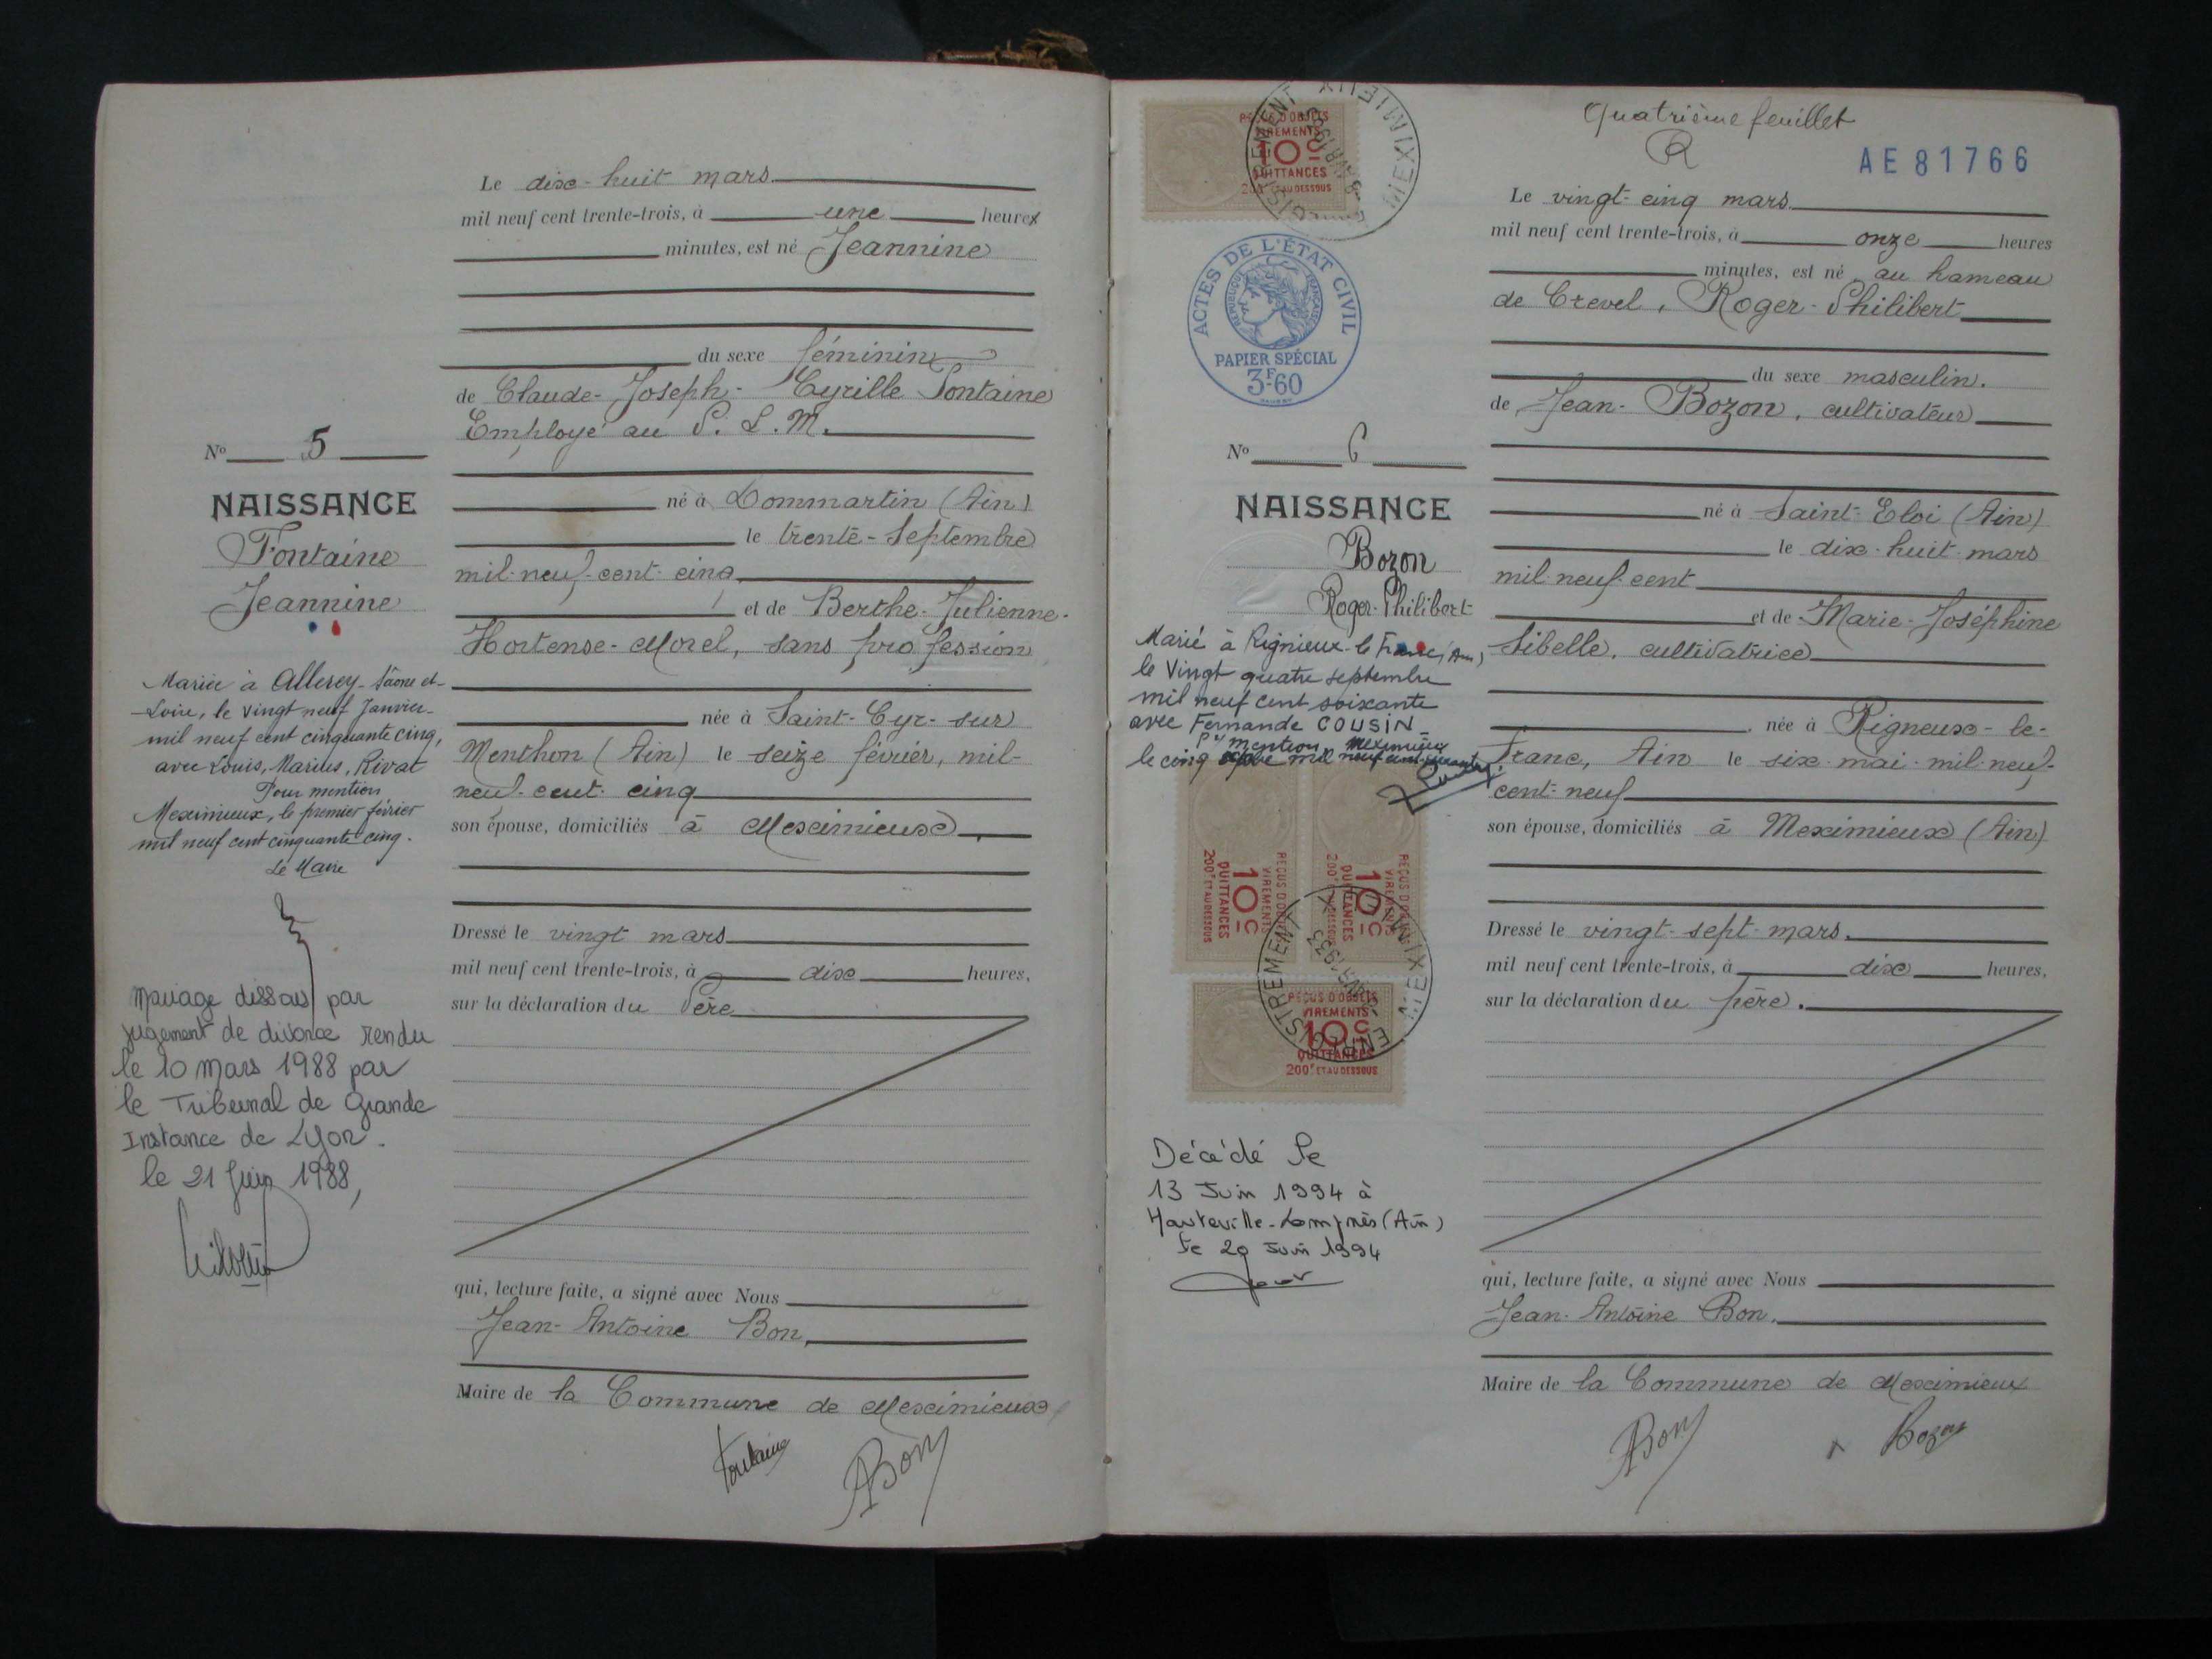 Le dix-huit mars
mil neuf cent trente-trois, à une heures
minutes, est né Jeannine
du sexe féminin
de Claude-Joseph-Cyrille Fontaine
Employé au P. L. M.
né à Dommartin (Ain)
le trente-Septembre
mil-neuf-cent-cinq
et de Berthe-Julienne-
Hortense-Morel, sans profession
née à Saint-Cyr-sur
Menthon (Ain) le seize février, mil-
neuf-cent-cinq
son épouse, domiciliés à Meximieux
Dressé le vingt mars
mil neuf cent trente-trois, à dix heures,
sur la déclaration du Père
qui, lecture faite, a signé avec Nous
Jean-Antoine Bon,
Maire de la Commune de Meximieux
Fontaine
ABon
No 5
NAISSANCE
Fontaine
Jeannine
Mariée à Allerey-Saône et-
Loire, le vingt neuf Janvier
mil neuf cent cinquante cinq,
avec Louis, Marius, Rivat
Pour mention
Meximieux, le premier février
mil neuf cent cinquante cinq.
Le Maire
Mariage dissous par
jugement de divorce rendu
le 10 Mars 1988 par
le Tribunal de Grande
Instance de Lyon.
le 21 Juin 1988,
Quatrième feuillet
AE 81766
REÇUS D'OBJETS
VIREMENTS
10c
QUITTANCES
200F ET AU DESSOUS
ENREGISTREMENT MEXIMIEUX
ACTES DE L'ÉTAT CIVIL
RÉPUBLIQUE FRANÇAISE
PAPIER SPÉCIAL
3F60
Le vingt-cinq mars
mil neuf cent trente-trois, à onze heures
minutes, est né au hameau
de Crevel, Roger-Philibert
du sexe masculin.
de Jean-Bozon, cultivateur
né à Saint-Eloi (Ain)
le dix-huit-mars
mil-neuf-cent
et de Marie-Joséphine
Sibelle, cultivatrice
née à Rigneux-le-
Franc, Ain le six-mai-mil-neuf-
cent-neuf
son épouse, domiciliés à Meximieux (Ain)
Dressé le vingt-sept-mars.
mil neuf cent trente-trois, à dix heures,
sur la déclaration du père.
qui, lecture faite, a signé avec Nous
Jean-Antoine Bon.
Maire de la Commune de Meximieux
ABon
Bozon
No 6
NAISSANCE
Bozon
Roger-Philibert
Marié à Rignieux-le Franc (Ain)
le Vingt quatre septembre
mil neuf cent soixante
avec Fernande COUSIN
Pr mention Meximieux
le cinq mil neuf cent
REÇUS D'OBJETS
VIREMENTS
10c
QUITTANCES
200F ET AU DESSOUS
REÇUS D'OBJETS
VIREMENTS
10c
QUITTANCES
200F ET AU DESSOUS
REÇUS D'OBJETS
VIREMENTS
10c
QUITTANCES
200F ET AU DESSOUS
ENREGISTREMENT MEXIMIEUX
Décédé le
13 Juin 1994 à
Hauteville-Lompnès (Ain)
Le 20 Juin 1994